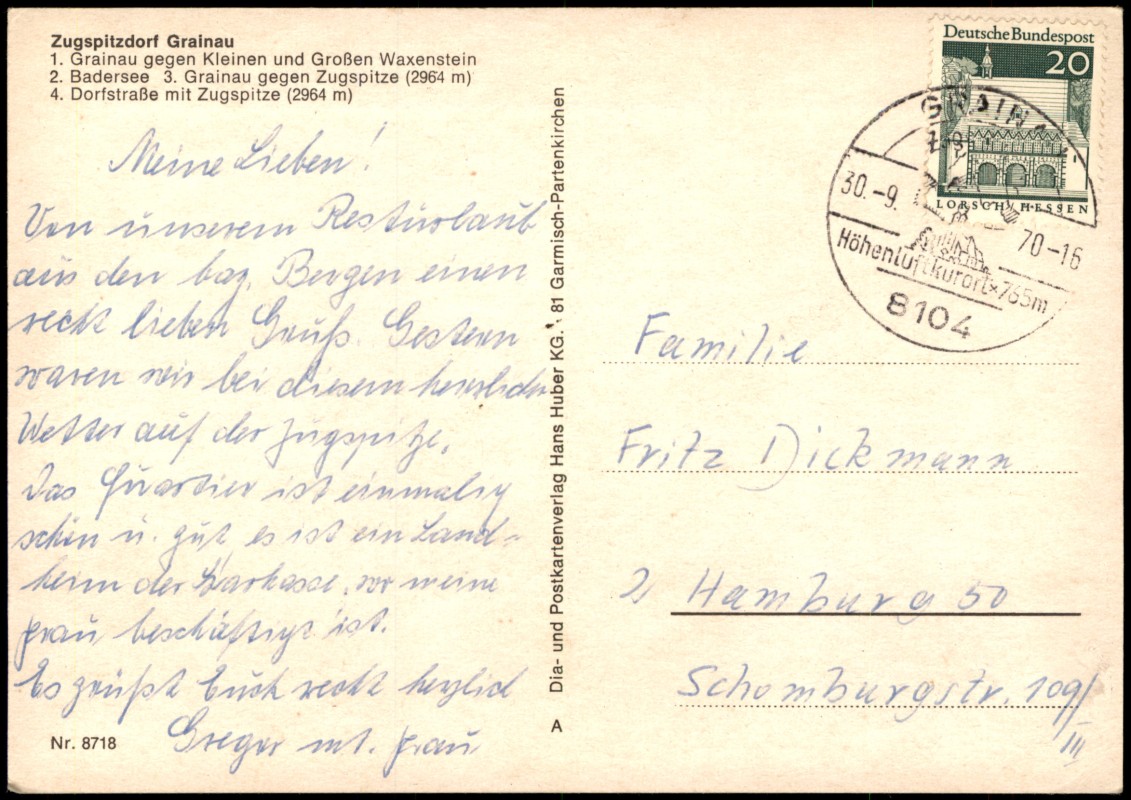 Zugspitzdorf Grainau
1. Grainau gegen Kleinen und Großen Waxenstein
2. Badersee 3. Grainau gegen Zugspitze (2964 m)
4. Dorfstraße mit Zugspitze (2964 m)
Meine Lieben!
Von unserem Resturlaub
aus den bay. Bergen einen
recht lieben Gruß. Gestern
waren wir bei diesem herrlichen
Wetter auf der Zugspitze.
Das Quartier ist einmalig
schön u. gut, es ist ein Land-
heim der Sparkasse, wo meine
Frau beschäftigt ist.
Es grüßt Euch recht herzlich
Greger mit Frau
Nr. 8718
Dia- und Postkartenverlag Hans Huber KG. 81 Garmisch-Partenkirchen
A
Deutsche Bundespost
20
LORSCH/HESSEN
GRAINAU
30.-9.
70-16
Höhenluftkurort×765m
8104
Familie
Fritz Dickmann
2 Hamburg 50
Schomburgstr. 109/
III